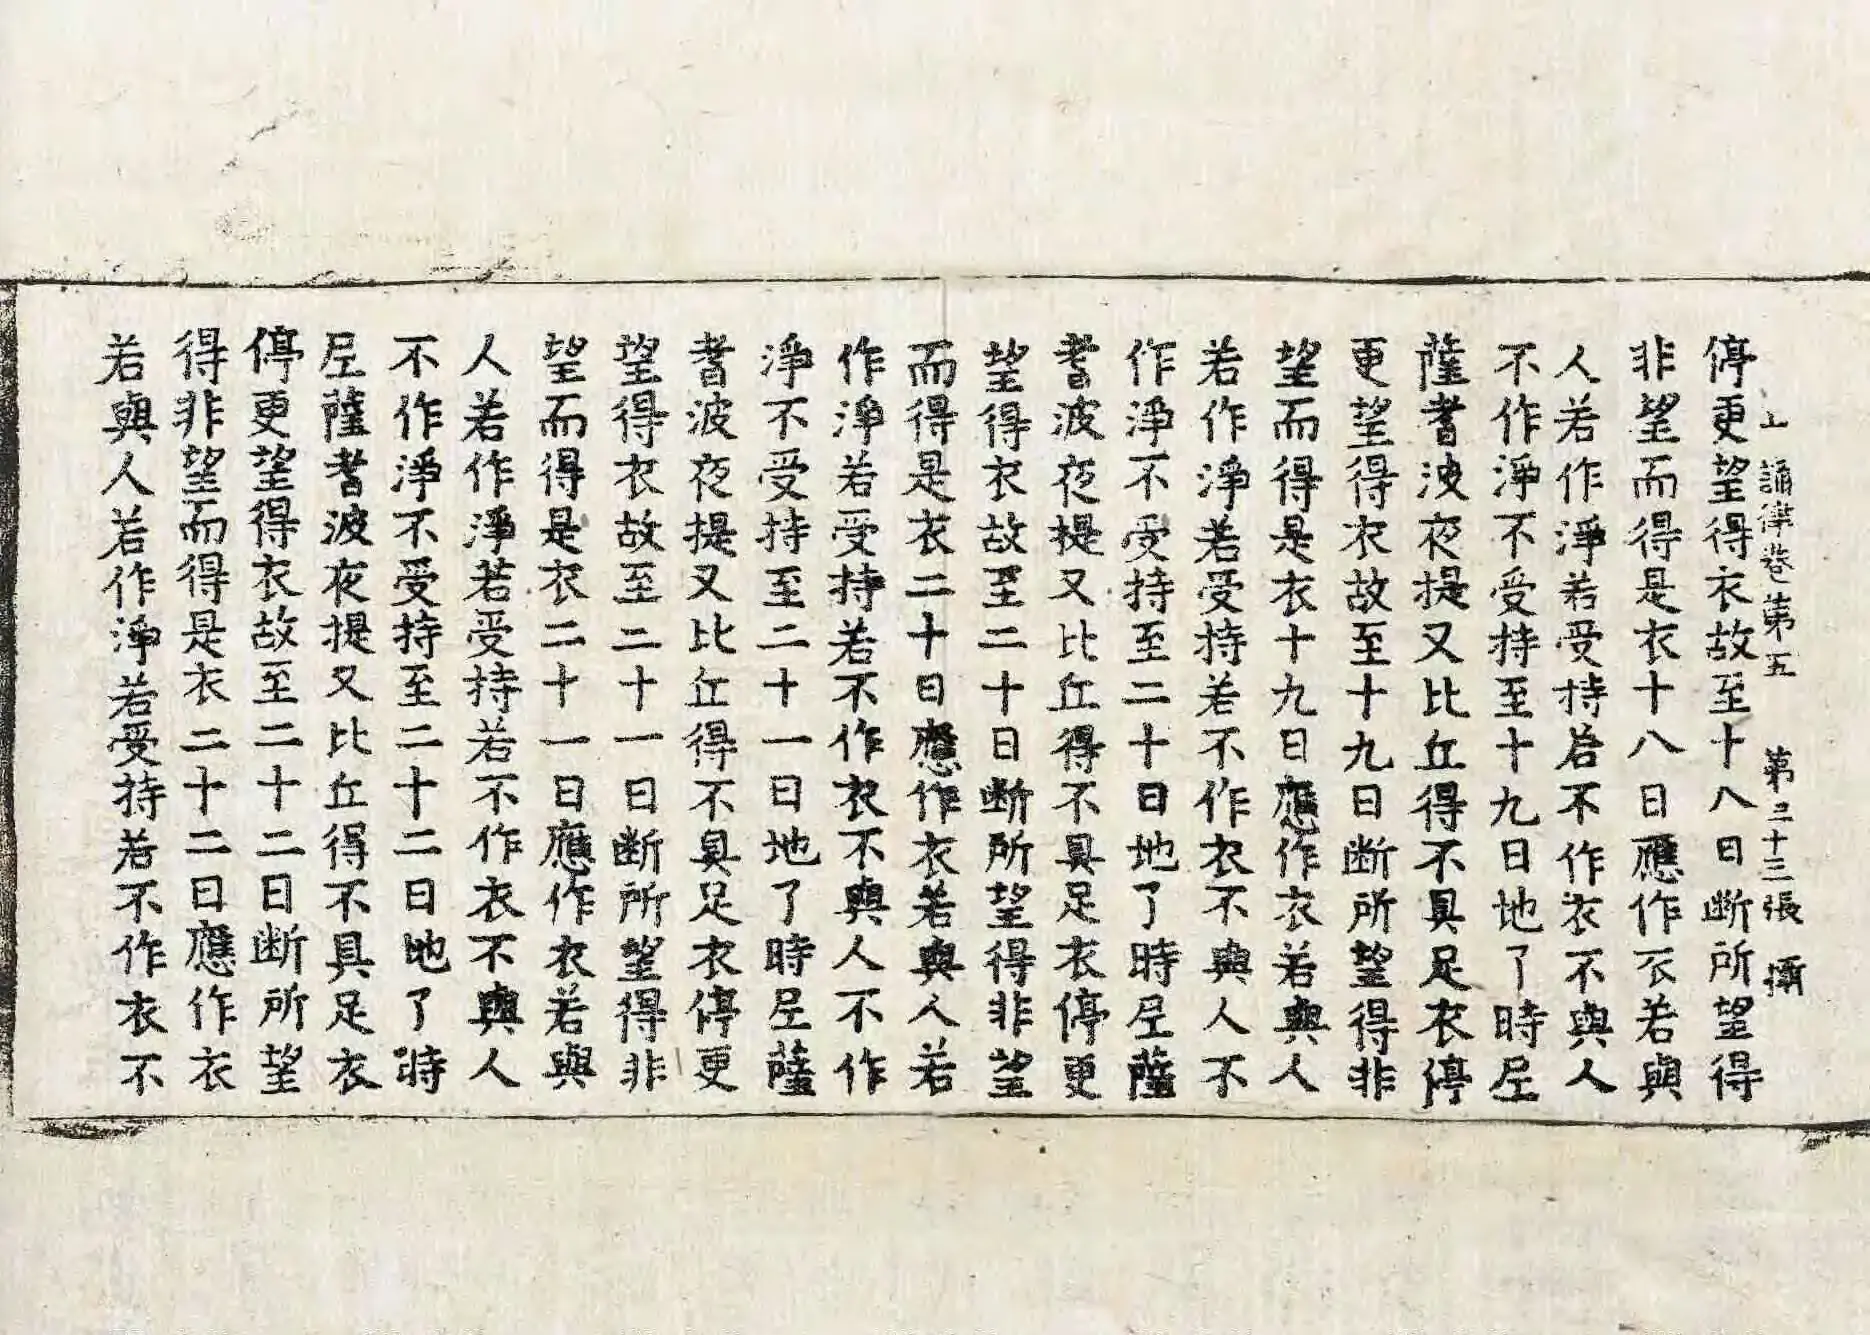 十誦律卷第五 第三十三張 攝
停更望得衣故至十八日断所望得
非望而得是衣十八日應作衣若與
人若作淨若受持若不作衣不與人
不作淨不受持至十九日地了時尼
薩耆波夜提又比丘得不具足衣停
更望得衣故至十九日断所望得非
望而得是衣十九日應作衣若與人
若作淨若受持若不作衣不與人不
作淨不受持至二十日地了時尼薩
耆波夜提又比丘得不具足衣停更
望得衣故至二十日断所望得非望
而得是衣二十日應作衣若與人若
作淨若受持若不作衣不與人不作
淨不受持至二十一日地了時尼薩
耆波夜提又比丘得不具足衣停更
望得衣故至二十一日断所望得非
望而得是衣二十一日應作衣若與
人若作淨若受持若不作衣不與人
不作淨不受持至二十二日地了時
尼薩耆波夜提又比丘得不具足衣
停更望得衣故至二十二日断所望
得非望而得是衣二十二日應作衣
若與人若作淨若受持若不作衣不